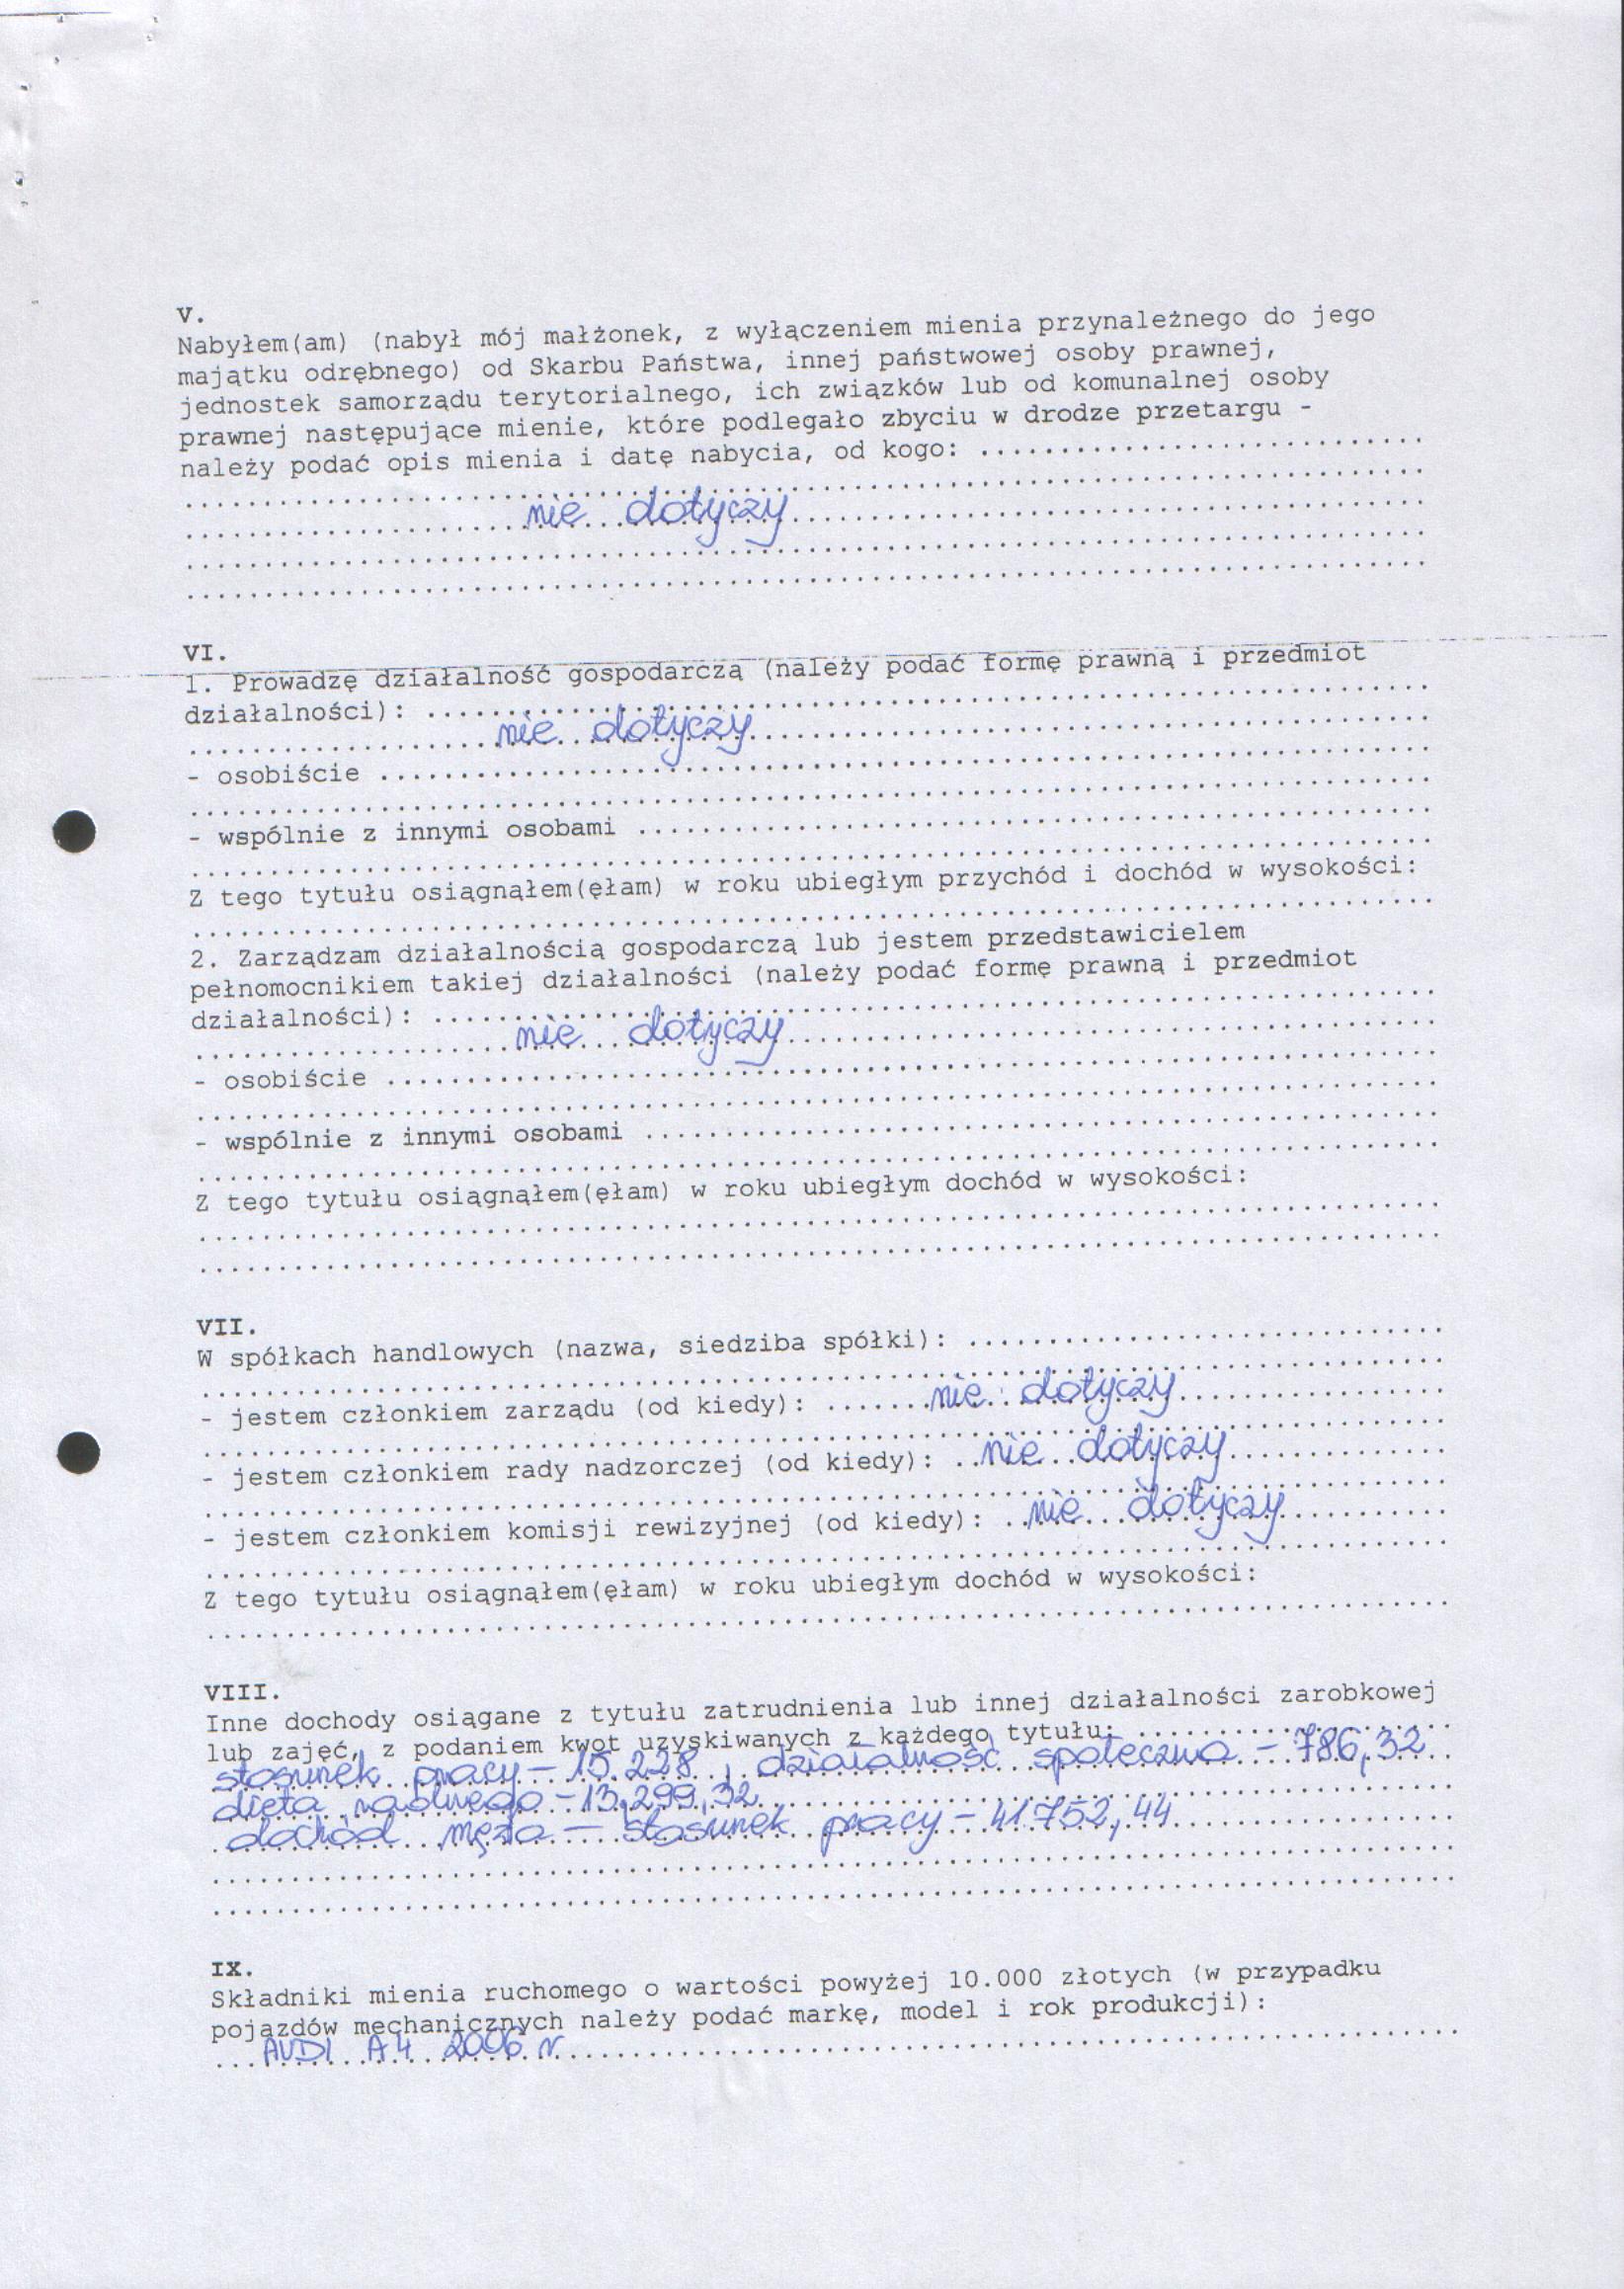 V.
Nabyłem(am) (nabył mój małżonek, z wyłączeniem mienia przynależnego do jego
majątku odrębnego) od Skarbu Państwa, innej państwowej osoby prawnej,
jednostek samorządu terytorialnego, ich związków lub od komunalnej osoby
prawnej następujące mienie, które podlegało zbyciu w drodze przetargu -
należy podać opis mienia i datę nabycia, od kogo:
nie dotyczy
VI.
1. Prowadzę działalność gospodarczą (należy podać formę prawną i przedmiot
działalności):
nie dotyczy
- osobiście
- wspólnie z innymi osobami
Z tego tytułu osiągnąłem(ęłam) w roku ubiegłym przychód i dochód w wysokości:
2. Zarządzam działalnością gospodarczą lub jestem przedstawicielem
pełnomocnikiem takiej działalności (należy podać formę prawną i przedmiot
działalności):
nie dotyczy
- osobiście
- wspólnie z innymi osobami
Z tego tytułu osiągnąłem(ęłam) w roku ubiegłym dochód w wysokości:
VII.
W spółkach handlowych (nazwa, siedziba spółki):
- jestem członkiem zarządu (od kiedy): nie dotyczy
- jestem członkiem rady nadzorczej (od kiedy): nie dotyczy
- jestem członkiem komisji rewizyjnej (od kiedy): nie dotyczy
Z tego tytułu osiągnąłem(ęłam) w roku ubiegłym dochód w wysokości:
VIII.
Inne dochody osiągane z tytułu zatrudnienia lub innej działalności zarobkowej
lub zajęć, z podaniem kwot uzyskiwanych z każdego tytułu:
stosunek pracy - 15.228, działalność społeczna - 786,32
dieta radnego - 13.299,32
dochód męża - stosunek pracy - 41.752,44
IX.
Składniki mienia ruchomego o wartości powyżej 10.000 złotych (w przypadku
pojazdów mechanicznych należy podać markę, model i rok produkcji):
AUDI A4 2006 r.